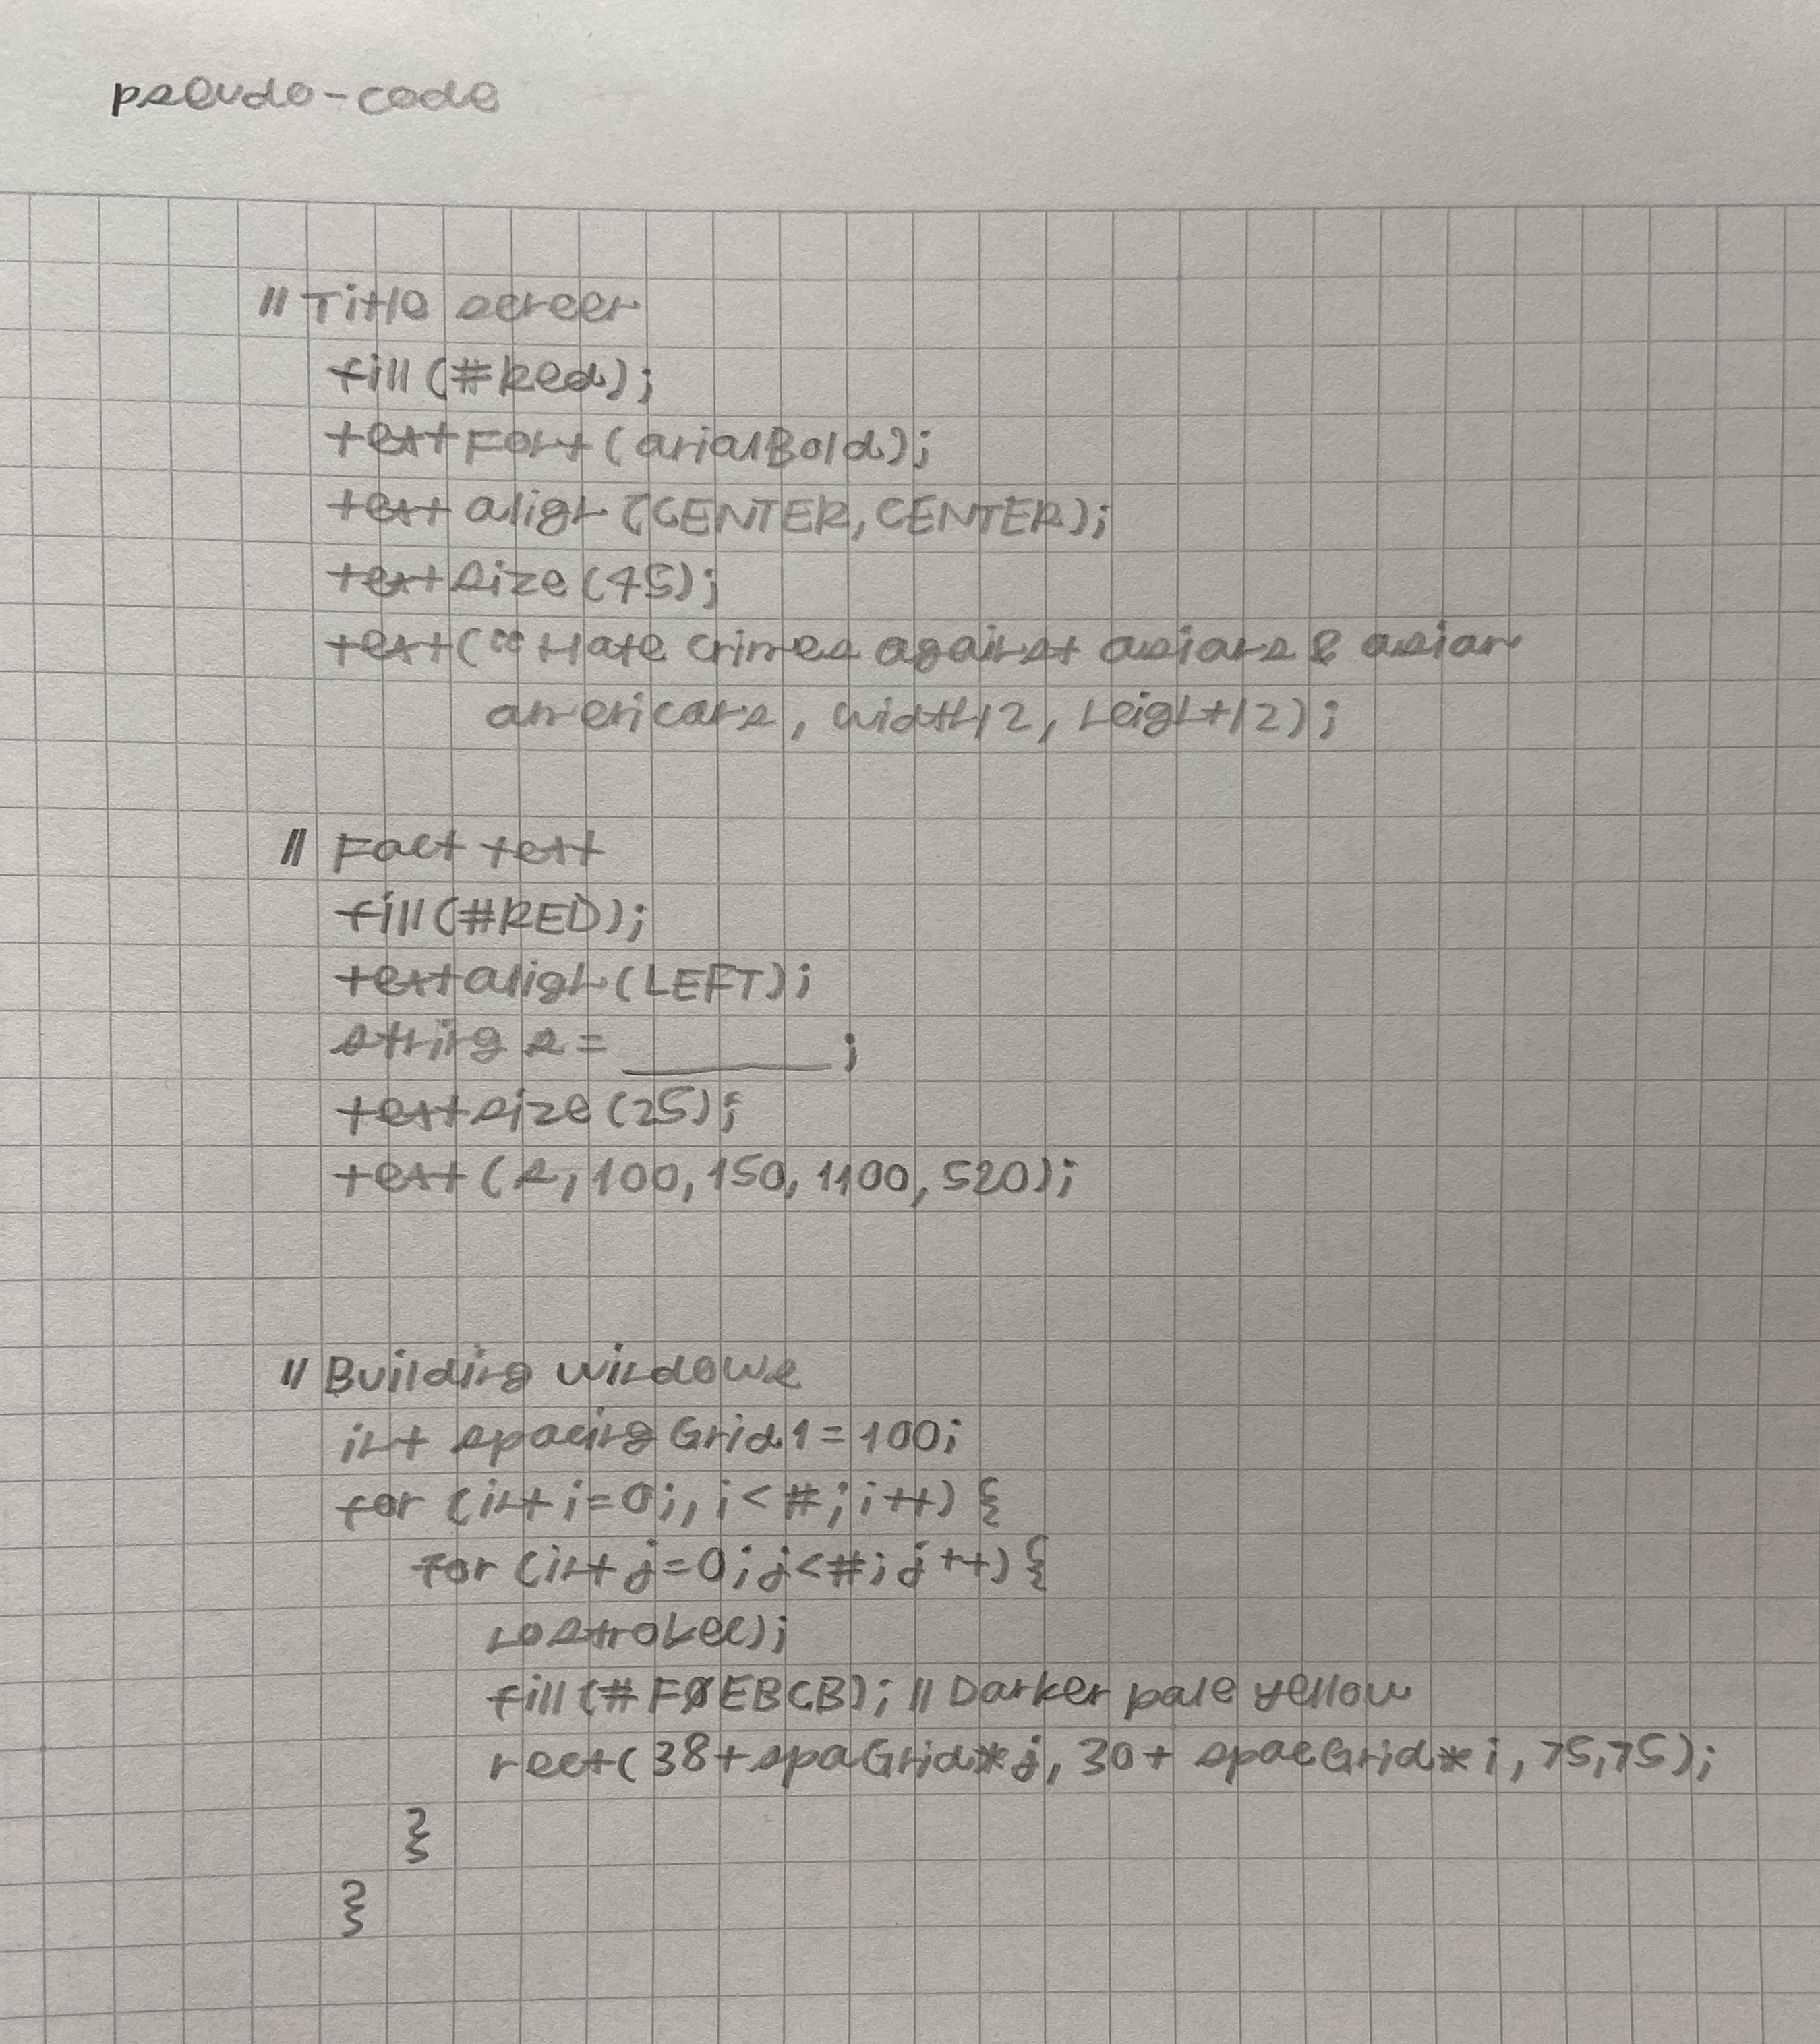 pseudo-code
// Title screen
fill(#Red);
textFont(arialBold);
text align (CENTER, CENTER);
textsize(45);
text("Hate crimes against asians & asian
americans, width/2, height/2);
// Fact text
fill(#RED);
textalign(LEFT);
string s = ______;
textsize(25);
text(s, 100, 150, 1100, 520);
// Building windows
int spacingGrid1 = 100;
for (int i=0;, i<#; i++) {
for (int j=0; j<#; j++) {
nostroke();
fill(#F0EBCB); // Darker pale yellow
rect(38+spaGrid*j, 30+ spacGrid*i, 75,75);
}
}